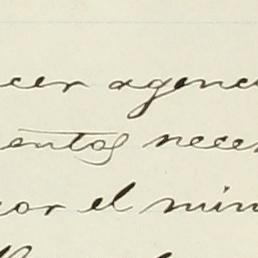 cer agenc
entos nece
or el min